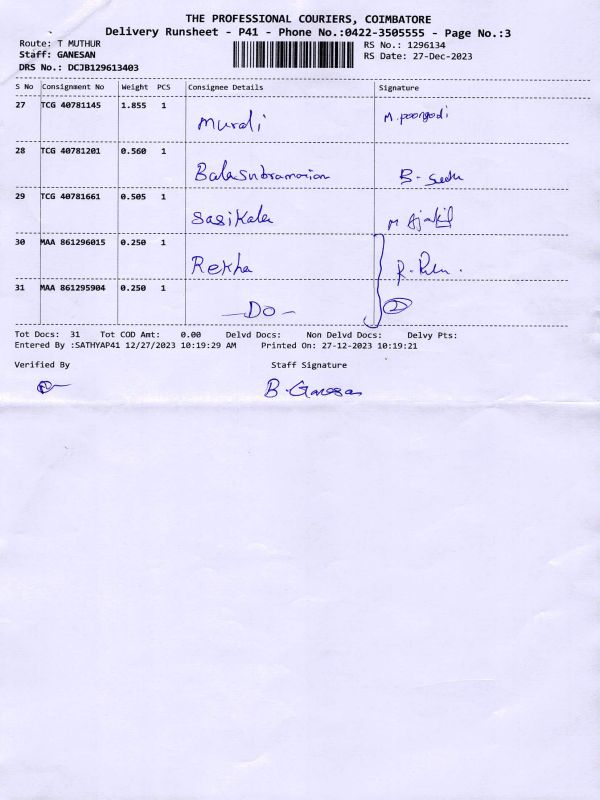 THE PROFESSIONAL COURIERS, COIMBATORE
Delivery Runsheet - P41 - Phone No.:0422-3505555 - Page No.:3
Route: T MUTHUR
RS No.: 1296134
Staff: GANESAN
RS Date: 27-Dec-2023
DRS No.: DCJB129613403
S No Consignment No Weight PCS Consignee Details Signature
27 TCG 40781145 1.855 1 Murali M. poongodi
28 TCG 40781201 0.560 1 Balasubramanian B-
29 TCG 40781661 0.505 1 Sasikala M
30 MAA 861296015 0.250 1 Rekha R.
31 MAA 861295904 0.250 1 - Do -
Tot Docs: 31 Tot COD Amt: 0.00 Delvd Docs: Non Delvd Docs: Delvy Pts:
Entered By :SATHYAP41 12/27/2023 10:19:29 AM Printed On: 27-12-2023 10:19:21
Verified By Staff Signature
B. Ganesan